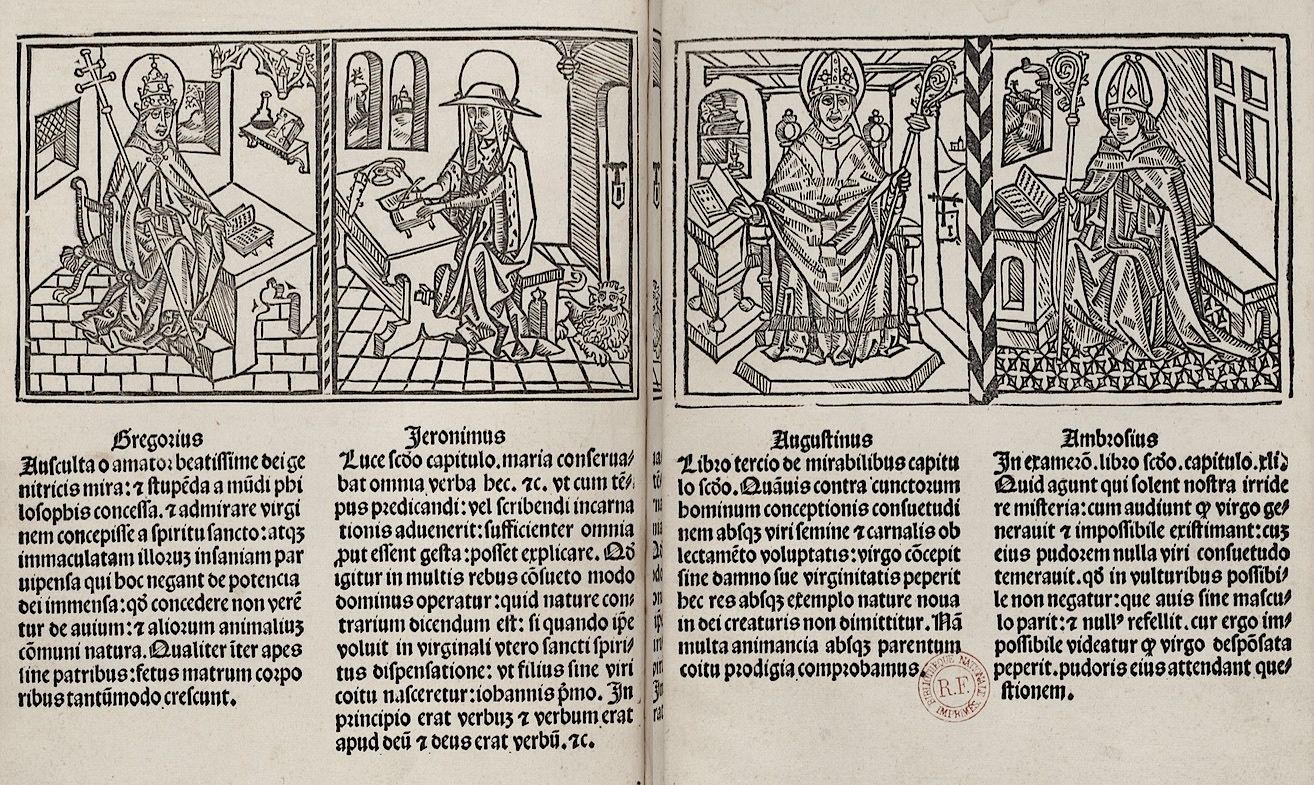 Gregorius
Ausculta o amator beatissime dei ge
nitricis mira: ⁊ stupēda a mūdi phi
losophis concessa. ⁊ admirare virgi
nem concepisse a spiritu sancto: atqꝫ
immaculatam illoruꝫ insaniam par
uipensa qui hoc negant de potencia
dei immensa: qđ concedere non verē
tur de auium: ⁊ aliorum animaliuꝫ
cōmuni natura. Qualiter īter apes
sine patribus: fetus matrum corpo
ribus tantūmodo crescunt.
Jeronimus
Luce scđo capitulo. maria conserua⸗
bat omnia verba hec. ⁊c. vt cum tē⸗
pus predicandi: vel scribendi incarna
tionis aduenerit: sufficienter omnia
ꝓut essent gesta: posset explicare. Qđ
igitur in multis rebus cōsueto modo
dominus operatur: quid nature con⸗
trarium dicendum est: si quando ip̄e
voluit in virginali vtero sancti spiri⸗
tus dispensatione: vt filius sine viri
coitu nasceretur: iohannis p̄mo. In
principio erat verbuꝫ ⁊ verbum erat
apud deū ⁊ deus erat verbū. ⁊c.
Augustinus
Libro tercio de mirabilibus capitu
lo scđo. Quāuis contra cunctorum
hominum conceptionis consuetudi
nem absqꝫ viri semine ⁊ carnalis ob
lectamēto voluptatis: virgo cōcepit
sine damno sue virginitatis peperit
hec res absqꝫ exemplo nature noua
in dei creaturis non dimittitur. Nā
multa animancia absqꝫ parentum
coitu prodigia comprobamus.
Ambrosius
In examerō. libro scđo. capitulo. xlij
Quid agunt qui solent nostra irride
re misteria: cum audiunt ꝙ virgo ge⸗
nerauit ⁊ impossibile existimant: cuꝫ
eius pudorem nulla viri consuetudo
temerauit. qđ in vulturibus possibi⸗
le non negatur: que auis sine mascu⸗
lo parit: ⁊ nullꝰ refellit. cur ergo im⸗
possibile videatur ꝙ virgo despōsata
peperit. pudoris eius attendant que⸗
stionem.
BIBLIOTHEQUE NATIONALE
R.F.
IMPRIMÉS